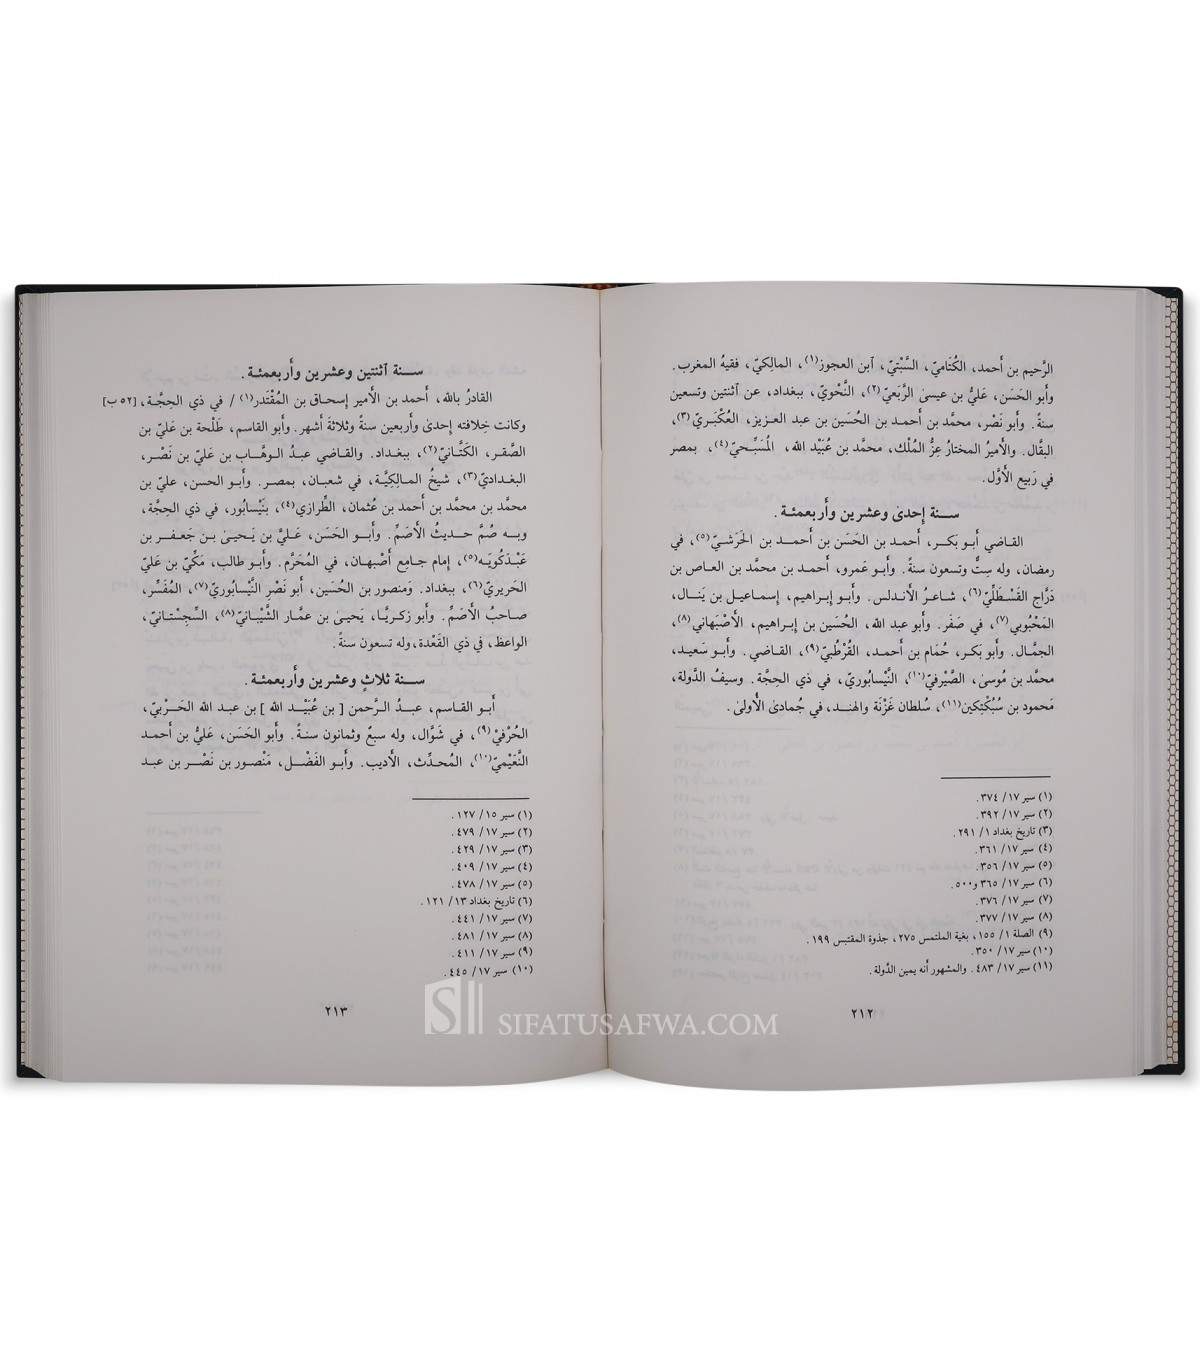 الرَّحيم بن أَحمد، الكُتَاميّ، السَّبْتيّ، آبن العجوز(١)، المالِكيّ، فقيهُ المغرب.
وأَبو الحَسَن، عَليُّ بن عيسىٰ الرَّبَعيّ(٢)، النَّحْويّ، ببغداد، عن ٱثنتين وتسعين
سنةً. وأَبو نَصْر، محمَّد بن أَحمد بن الحُسَين بن عبد العزيز، العُكْبَريّ(٣)،
البقَّال. والأَميرُ المختارُ عزُّ المُلْك، محمَّد بن عُبَيْد الله، المُسَبِّحيّ(٤)، بمصر
في رَبيع الأَوَّل.
سنة إِحدىٰ وعشرين وأَربعمئة.
القاضي أَبو بَكر، أَحمد بن الحَسَن بن أَحمد بن الحَرَشيّ(٥)، في
رمضان، وله سِتٌّ وتسعون سنةً. وأَبو عَمرو، أَحمد بن محمَّد بن العاص بن
دَرَّاج القَسْطَلِّيّ(٦)، شاعرُ الأَندلس. وأَبو إِبراهيم، إِسماعيل بن يَنال،
المَحْبُوبي(٧)، في صَفَر. وأَبو عبد الله، الحُسَين بن إِبراهيم، الأَصْبَهاني(٨)،
الجمَّال. وأَبو بَكر، حُمَام بن أَحمد، القُرْطُبيّ(٩)، القاضي. وأَبو سَعيد،
محمَّد بن مُوسىٰ، الصَّيْرفيّ(١٠)، النَّيْسابُوريّ، في ذي الحِجَّة. وسيفُ الدَّولة،
مَحمود بن سُبُكْتِكين(١١)، سُلطان غَزْنَة والهند، في جُمادىٰ الأُولىٰ.
(١) سير ١٧/ ٣٧٤.
(٢) سير ١٧/ ٣٩٢.
(٣) تاريخ بغداد ١/ ٢٩١.
(٤) سير ١٧/ ٣٦١.
(٥) سير ١٧/ ٣٥٦.
(٦) سير ١٧/ ٣٦٥ و٥٠٠.
(٧) سير ١٧/ ٣٧٦.
(٨) سير ١٧/ ٣٧٧.
(٩) الصلة ١/ ١٥٥، بغية الملتمس ٢٧٥، جذوة المقتبس ١٩٩.
(١٠) سير ١٧/ ٣٥٠.
(١١) سير ١٧/ ٤٨٣. والمشهور أنه يمين الدَّولة.
٢١٢
سنة ٱثنتين وعشرين وأَربعمئة.
القادرُ بالله، أَحمد بن الأَمير إِسحاق بن المُقْتَدر(١) / في ذي الحِجَّة، [٥٢ ب]
وكانت خِلافته إِحدىٰ وأَربعين سنةً وثلاثةَ أَشهر. وأَبو القاسم، طَلْحة بن عَليّ بن
الصَّقر، الكَتَّانيّ(٢)، ببغداد. والقاضي عبدُ الوهَّاب بن عَليّ بن نَصْر،
البغداديّ(٣)، شيخُ المالِكيَّة، في شعبان، بمصر. وأَبو الحسن، عليّ بن
محمَّد بن محمَّد بن أَحمد بن عُثمان، الطِّرازي(٤)، بنَيْسابُور، في ذي الحِجَّة،
وبه ضُمَّ حديثُ الأَصَمِّ. وأَبو الحَسَن، عَليُّ بن يَحيىٰ بن جَعفر بن
عَبْدَكُويَه(٥)، إِمام جامِع أَصْبهان، في المُحَرَّم. وأَبو طالب، مَكّيّ بن عَليّ
الحَريريّ(٦)، ببغداد. ومَنصور بن الحُسَين، أَبو نَصْرِ النَّيْسابُوريّ(٧)، المُفَسِّر،
صاحبُ الأَصَمِّ. وأَبو زكريَّا، يَحيىٰ بن عمَّار الشَّيْبانيّ(٨)، السِّجِسْتانيّ،
الواعظ، في ذي القَعْدة، وله تسعون سنةً.
سنة ثلاثٍ وعشرين وأَربعمئة.
أَبو القاسم، عبدُ الرَّحمن [بن عُبَيْد الله] بن عبد الله الحَرْبيّ،
الحُرْفيّ(٩)، في شَوَّال، وله سبعٌ وثمانون سنةً. وأَبو الحَسَن، عَليُّ بن أَحمد
النُّعَيْميّ(١٠)، المُحدِّث، الأَديب. وأَبو الفَضْل، مَنْصور بن نَصْر بن عبد
(١) سير ١٥/ ١٢٧.
(٢) سير ١٧/ ٤٧٩.
(٣) سير ١٧/ ٤٢٩.
(٤) سير ١٧/ ٤٠٩.
(٥) سير ١٧/ ٤٧٨.
(٦) تاريخ بغداد ١٣/ ١٢١.
(٧) سير ١٧/ ٤٤١.
(٨) سير ١٧/ ٤٨١.
(٩) سير ١٧/ ٤١١.
(١٠) سير ١٧/ ٤٤٥.
٢١٣
SIFATUSAFWA.COM